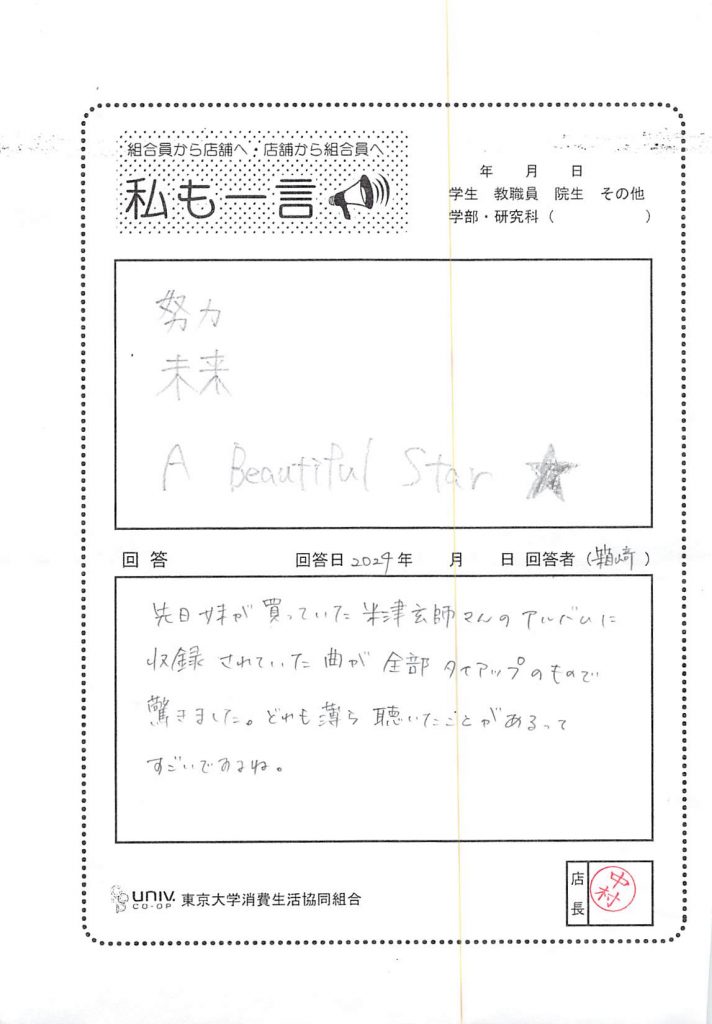 組合員から店舗へ・店舗から組合員へ
私も一言
年 月 日
学生 教職員 院生 その他
学部・研究科（ ）
努力
未来
A Beautiful Star ★
回答 回答日 2024年 月 日 回答者（箱崎）
先日妹が買っていた米津玄師さんのアルバムに
収録されていた曲が全部タイアップのもので
驚きました。どれも薄ら聴いたことがあるって
すごいですよね。
UNIV. CO-OP 東京大学消費生活協同組合
店長
中村